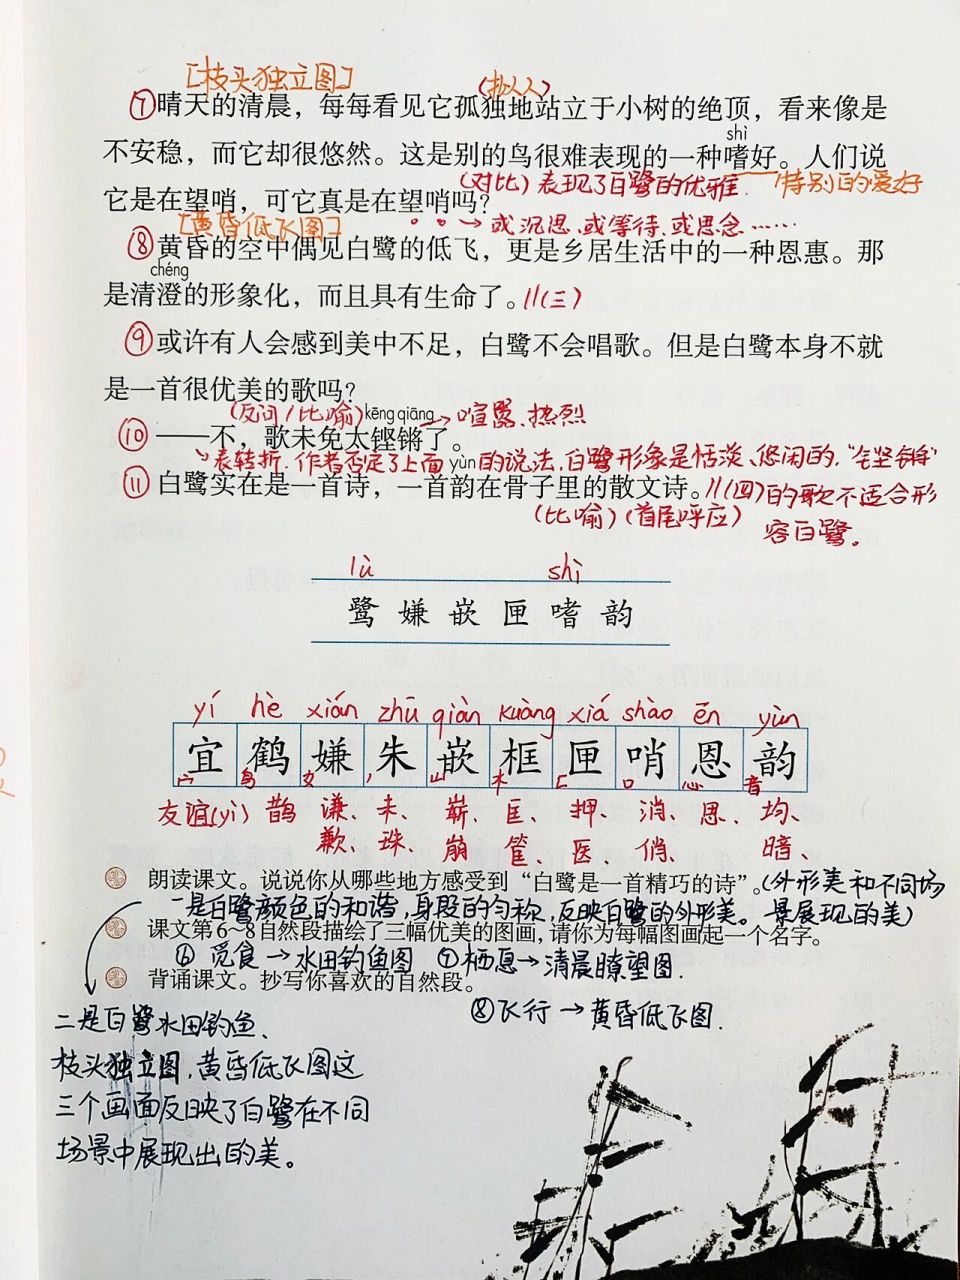 [枝头独立图]
(拟人)
⑦晴天的清晨，每每看见它孤独地站立于小树的绝顶，看来像是
shì
不安稳，而它却很悠然。这是别的鸟很难表现的一种嗜好。人们说
(对比)表现了白鹭的优雅. 特别的爱好
它是在望哨，可它真是在望哨吗？
[黄昏低飞图]
→或沉思.或等待.或思念……
⑧黄昏的空中偶见白鹭的低飞，更是乡居生活中的一种恩惠。那
chéng
是清澄的形象化，而且具有生命了。//(三)
⑨或许有人会感到美中不足，白鹭不会唱歌。但是白鹭本身不就
是一首很优美的歌吗？
(反问/比喻) kēng qiāng →喧嚣.热烈
⑩——不，歌未免太铿锵了。
表转折.作者否定了上面的说法,白鹭形象是恬淡、悠闲的,"铿锵"
yùn
⑪白鹭实在是一首诗，一首韵在骨子里的散文诗。//(四)的歌不适合形
(比喻)(首尾呼应) 容白鹭。
lù shì
鹭 嫌 嵌 匣 嗜 韵
yí hè xián zhū qiàn kuàng xiá shào ēn yùn
宜 鹤 嫌 朱 嵌 框 匣 哨 恩 韵
宀 鸟 女 丿 山 木 匚 口 心 音
友谊(yì) 鹊 谦、未、崭、匡、押、消、思、均、
歉、珠、崩 筐、医、俏、 暗、
朗读课文。说说你从哪些地方感受到“白鹭是一首精巧的诗”。(外形美和不同场
一是白鹭颜色的和谐,身段的匀称,反映白鹭的外形美。 景展现的美)
课文第6~8自然段描绘了三幅优美的图画，请你为每幅图画起一个名字。
⑥觅食→水田钓鱼图 ⑦栖息→清晨瞭望图.
背诵课文。抄写你喜欢的自然段。
⑧飞行→黄昏低飞图.
二是白鹭水田钓鱼、
枝头独立图,黄昏低飞图这
三个画面反映了白鹭在不同
场景中展现出的美。